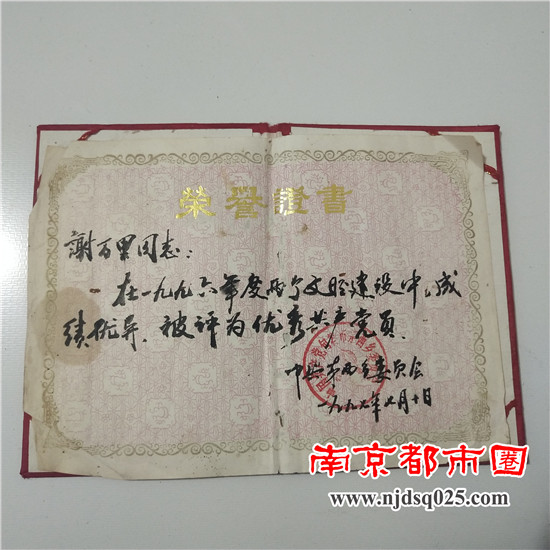 荣誉證書
谢万里同志：
在一九九六年度两个文明建设中，成
绩优异，被评为优秀共产党员。
中共
委员会
一九九七年七月十日
南京都市圈
www.njdsq025.com